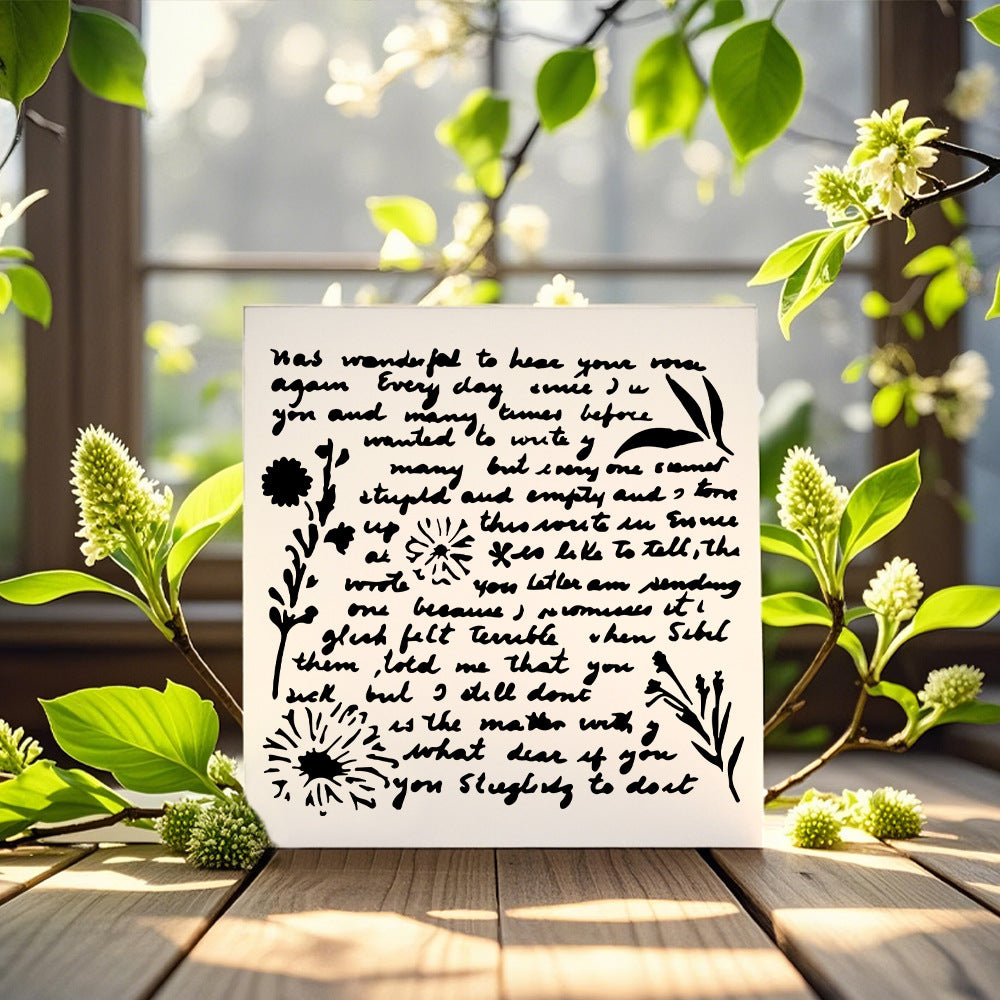 was wonderful to hear your voice
again Every day since I
you and many times before
wanted to write y
many but every one seemed
stupid and empty and I tore
up this write in
at is like to tell, the
wrote you letter am sending
one because I promised it
felt terrible when Sibel
them , told me that you
sick but I still dont
is the matter with y
what dear if you
you to dont